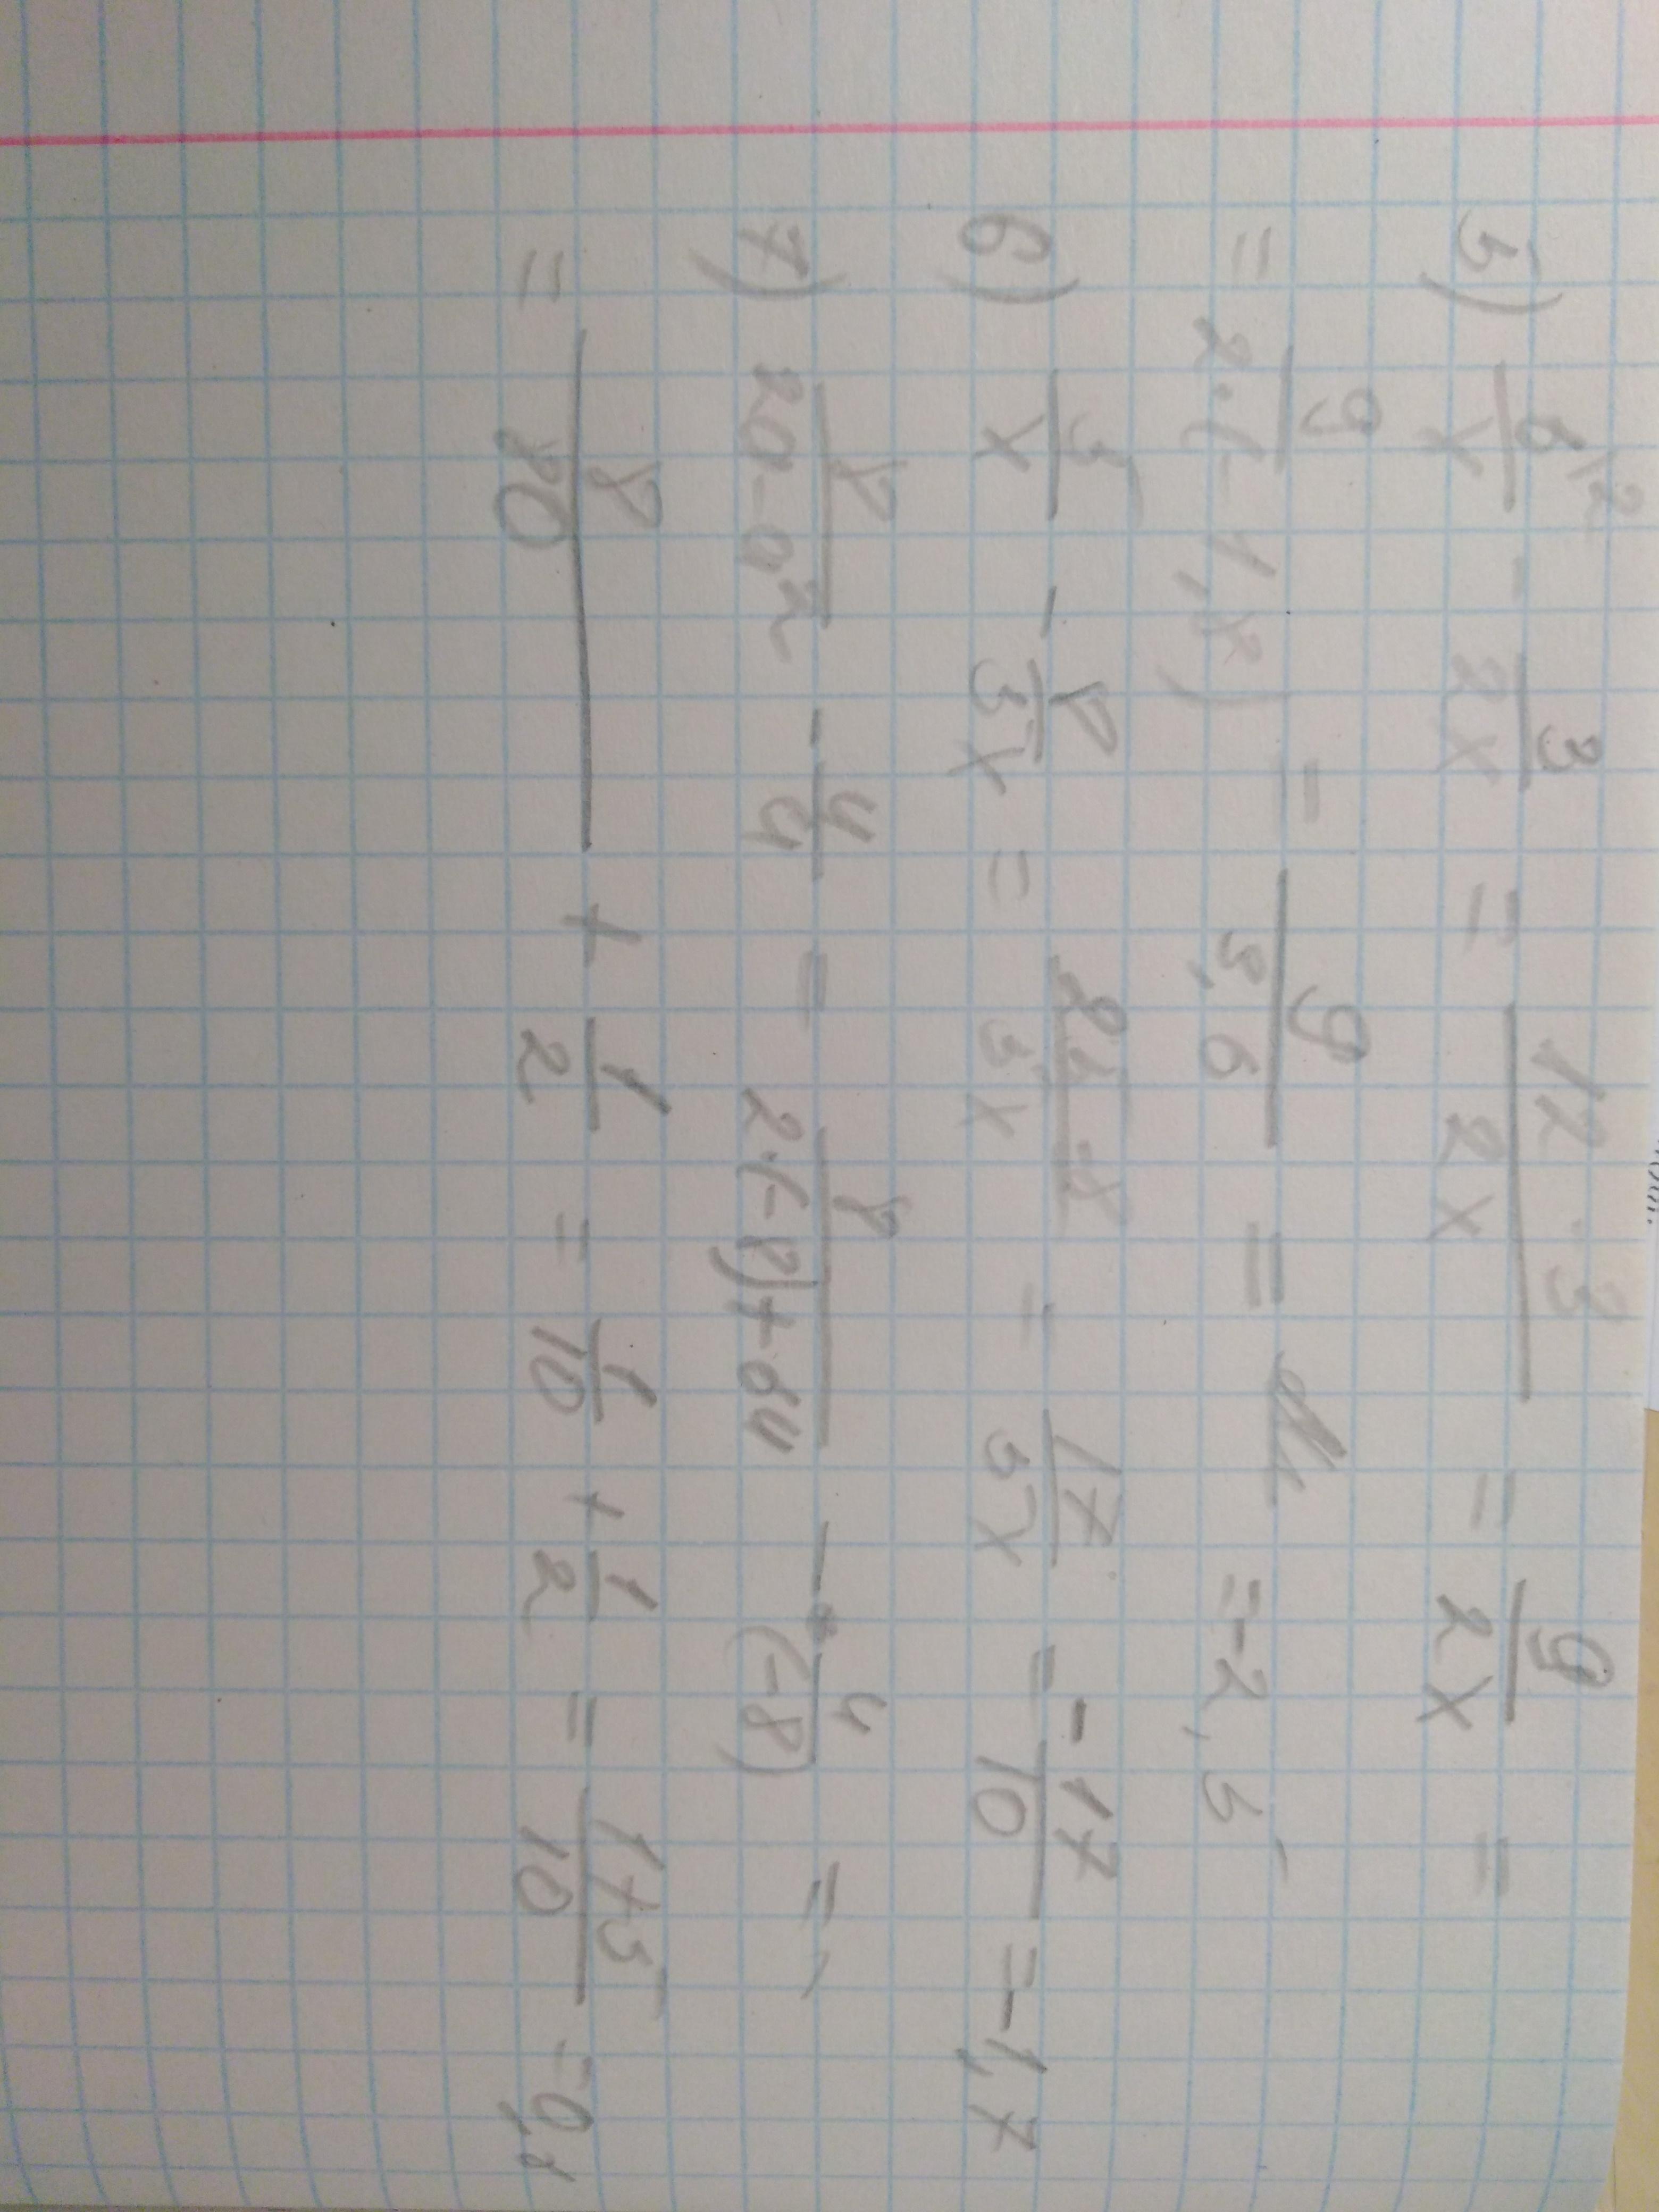 5) 6\2/x - 3/2x = 12-3/2x = 9/2x =
= 9/2·(-1,8) = 9/3,6 = = -2,5
6) 5/x - 8/5x = 25-8/5x = 17/5x = -17/10 = -1,7
7) 8/2a-a² - 4/a = 8/2·(-8)+64 - 4/(-8) =
= 8/80 + 1/2 = 1/10 + 1/2 = 1+5/10 =